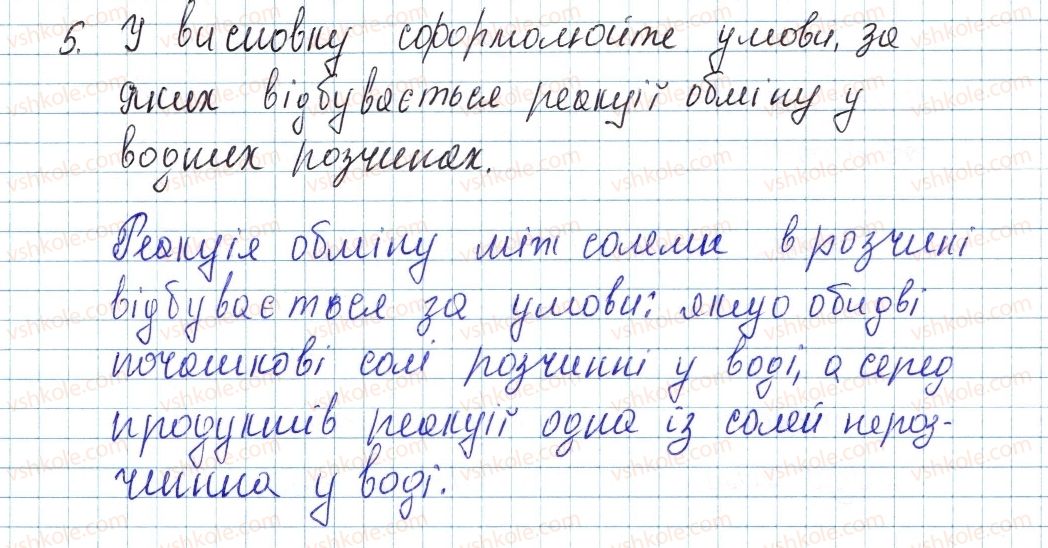 5. У висновку сформолюйте умови, за
яких відбувається реакції обміну у
водних розчинах.
Реакція обміну між солями в розчині
відбувається за умови: якщо обидві
початкові солі розчинні у воді, а серед
продуктів реакції одна із солей нероз-
чинна у воді.